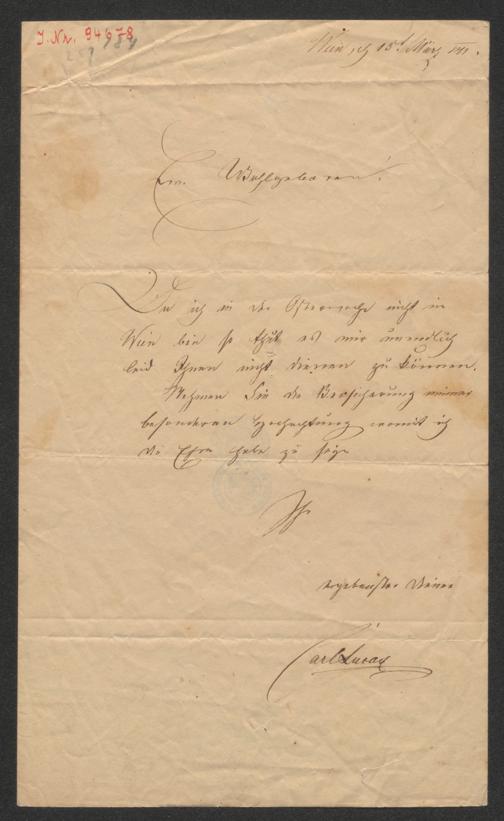 J. Nr. 94678
Wien, d 15t März
Ew. Wohlgeboren!
Da ich in der Osterwoche nicht in
Wien bin so thut es mir unendlich
leid Ihnen nicht dienen zu können.
Nehmen Sie die Versicherung meiner
besonderen Hochachtung womit ich
die Ehre habe zu sein
Ihr
ergebenster Diener
Carl Lucas